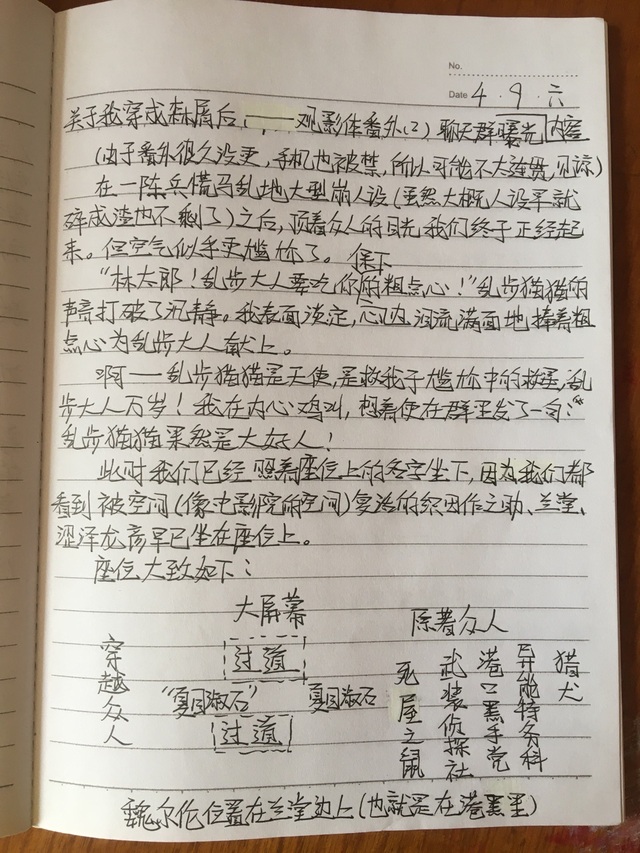 No.
Date 4.9.六
关于我穿成森屑后,——观影体番外(2) 聊天群曝光内容
(由于番外很久没更,手机也被禁,所以可能不太连贯,见谅)
在一阵兵慌马乱地大型崩人设(虽然大概人设早就
碎成渣也不剩了)之后,顶着众人的目光我们终于正经起
来。但空气似乎更尴尬了。
“林太郎!乱步大人要吃你剩下的粗点心!”乱步猫猫的
声音打破了沉静。我表面淡定,心内泪流满面地捧着粗
点心为乱步大人献上。
啊——乱步猫猫是天使,是救我于尴尬中的救星,乱
步大人万岁!我在内心鸡叫,想着便在群里发了一句:“
乱步猫猫果然是大好人!
此时我们已经照着座位上的名字坐下,因为我们都
看到被空间(像电影院的空间)复活的织田作之助、兰堂、
涩泽龙彦早已坐在座位上。
座位大致如下:
大屏幕
原著众人
穿越众人
过道
“夏目漱石”
夏目漱石
过道
死屋之鼠
武装侦探社
港口黑手党
异能特务科
猎犬
魏尔伦位置在兰堂边上(也就是在港黑里)